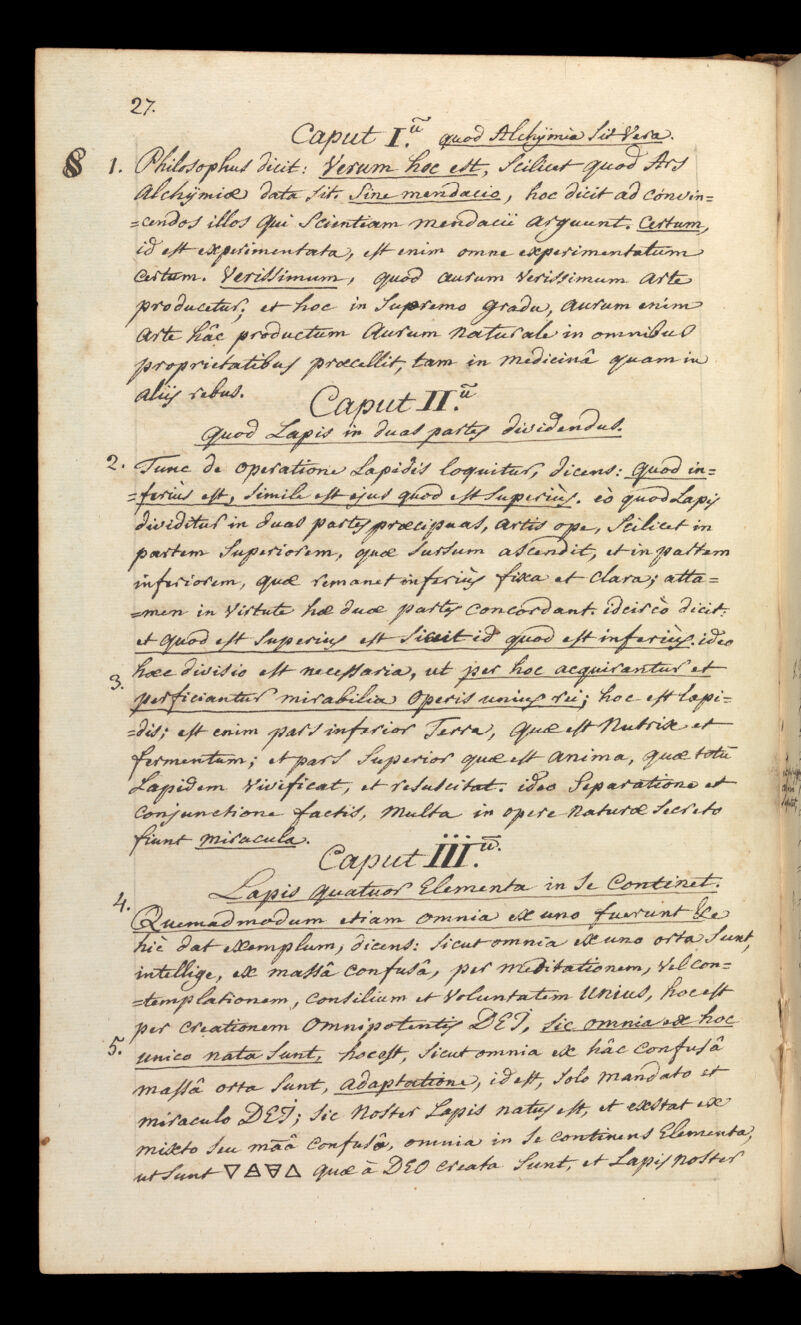 27.
Caput I.ũ quod Alchÿmia sit Vera.
§ 1. Philosophus dicit: Verum hoc est, scilicet quod Ars
Alchÿmiæ data sit. Sine mendacio, hoc dicit ad convin=
=cendos illos qui scientiam mendacii arguunt. Certum,
id est experimentata, est enim omne experimentatum
certum. Verissimum, quod aurum verissimum arte
producetur; et hoc in supremo gradu, aurum enim
arte hâc productum aurum naturale in omnibus
proprietatibus præcellit, tam in medicinâ quam in
aliis rebus.
Caput II.ũ
quod Lapis in duas partes dividendus.
2. Tunc de operatione Lapidis loquitur, dicens: quod in=
=feriùs est, simile est ejus quod est superiùs. eò quod Lapis
dividitur in duas partes præcipuas, artis ope, scilicet in
partem superiorem, quæ sursum ascendit, et in partem
inferiorem, quæ remanet inferiùs fixa et clara; atta=
=men in virtute hæ duæ partes concordant. idcircò dicit:
et quod est superius est sicut id quod est inferiùs. ideo
3. hæc divisio est necessaria, ut per hoc acquirantur et
perficiantur mirabilia operis unius rei; hoc est lapi=
=dis; est enim pars inferior Terra, quæ est Nutrix et
fermentum; et pars superior quæ est anima, quæ totũ
Lapidem vivificat, et resuscitat. ideo separatione et
conjunctione factis, multa in opere naturæ secreto
fiunt miracula.
Caput III.ũ.
Lapis quatuor Elementa in se continet.
4. Quemadmodum etiam omnia ex uno fuerunt &c
hic dat exemplum, dicens: sicut omnia ex uno orta sunt,
intellige, ex massâ confusâ, per meditationem, vel con=
=templationem, consilium et voluntatem UNIUS, hoc est
per creationem Omnipotentis DEI, sic omnia ex hoc
5. unico nata sunt, hoc est, sicut omnia ex hâc confusâ
massâ orta sunt, adaptatione, id est, solo mandato et
miraculo DEI; sic Noster Lapis natus est, et exstat ex
mixto seu mãâ confusâ, omnia in se continens Elementa,
ut sunt 🜄 🜁 🜃 🜂 quæ à DEO creata sunt, et Lapis noster